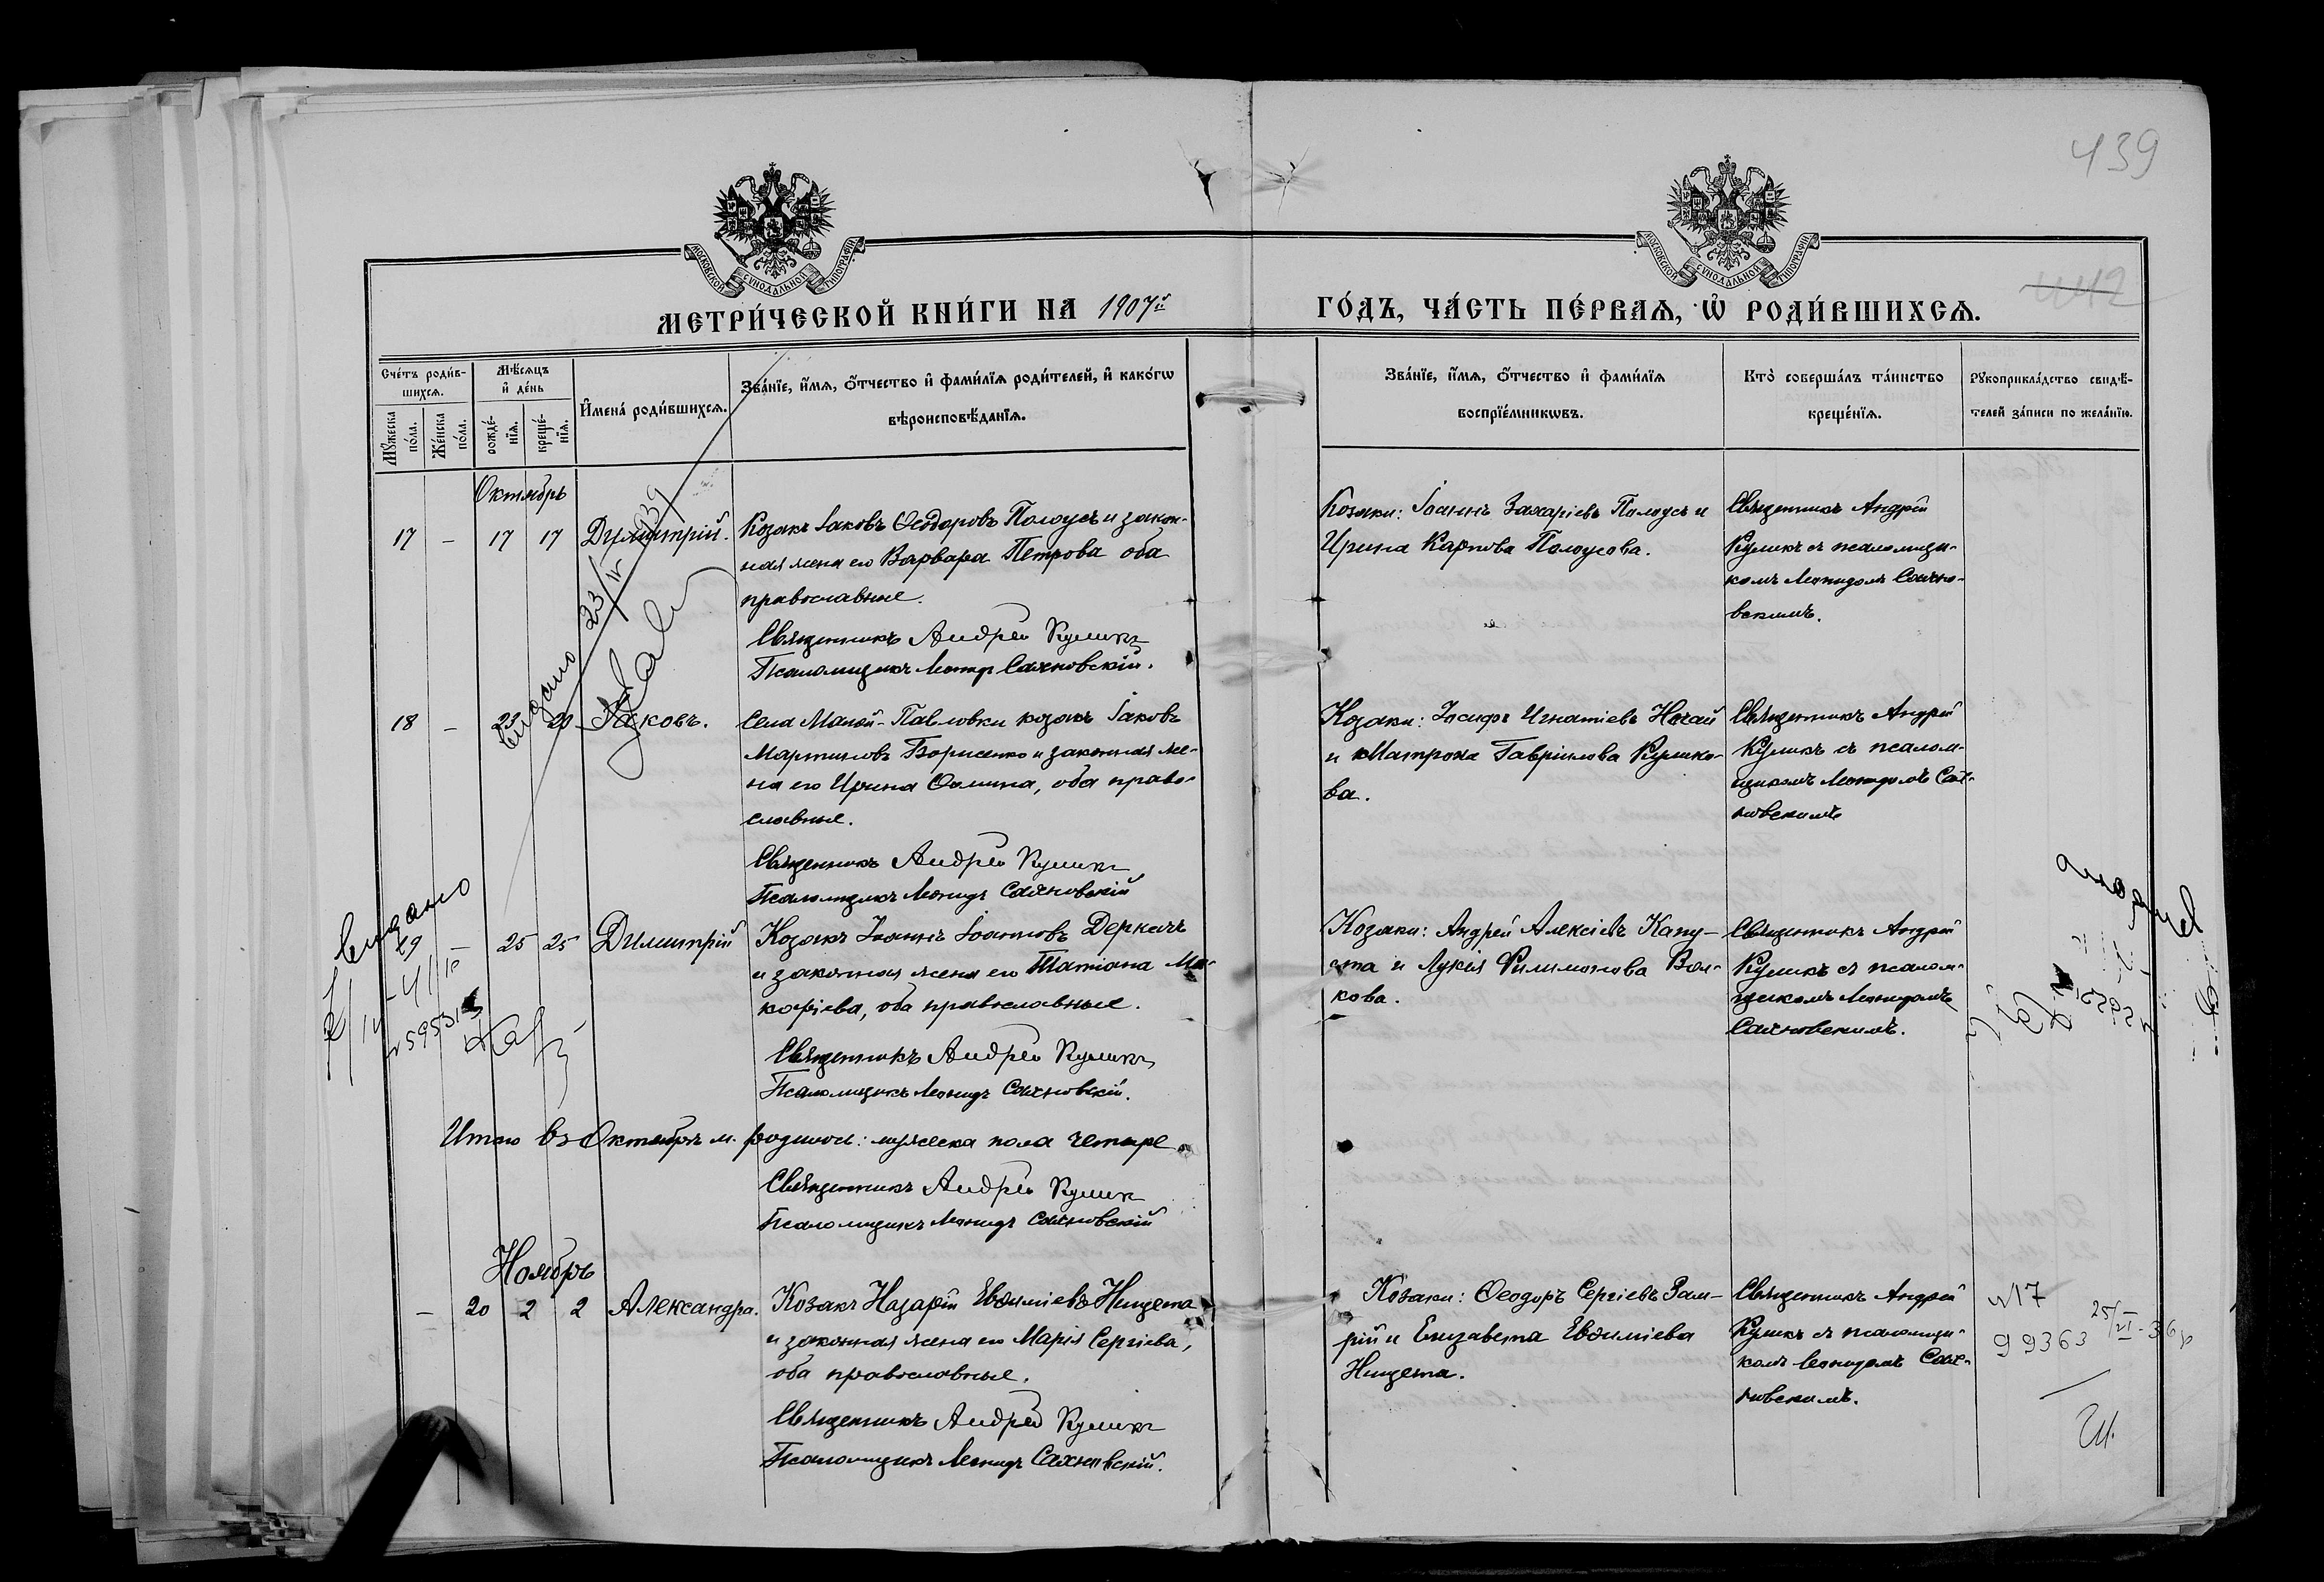 439
МОСКОВСКОЙ СѴНОДАЛЬНОЙ ТИПОГРАФІИ
МОСКОВСКОЙ СѴНОДАЛЬНОЙ ТИПОГРАФІИ
МЕТРИ́ЧЕСКОЙ КНИ́ГИ НА 1907й
ГО́ДЪ, ЧА́СТЬ ПЕ́РВАѦ, Ѡ҆ РОДИ́ВШИХСѦ.
442
Сче́тъ роди́в-
шихсѧ.
Мꙋ́жеска по́ла.
Же́нска по́ла.
Мѣ́сѧцъ
и҆ де́нь
рожде́-
нїѧ.
креще́-
нїѧ.
И҆мена̀ роди́вшихсѧ.
Зва́нїе, и҆́мѧ, ѻ҆́тчество и҆ фами́лїѧ роди́телей, и҆ како́гѡ
вѣроисповѣ́данїѧ.
Зва́нїе, и҆́мѧ, ѻ҆́тчество и҆ фами́лїѧ
воспрїе́мникѡвъ.
Кто̀ соверша́лъ та́инство
креще́нїѧ.
Рꙋкоприкла́дство свидѣ́-
телей за́писи по жела́нїю.
Октябрь
17 - 17 17 Димитрій.
Козакъ Іаковъ Ѳеодоровъ Полоусъ и закон-
ная жена его Варвара Петрова оба
православные.
Священникъ Андрей Куликъ
Псаломщикъ Леонидъ Сахновскій.
Козаки: Іоаннъ Захаріевъ Полоусъ и
Ирина Карпова Полоусова.
Священникъ Андрей
Куликъ съ псаломщи-
комъ Леонидомъ Сахно-
вскимъ.
Выдано 23/IV
18 - 23 Іаковъ.
Села Малой-Павловки козакъ Іаковъ
Мартиновъ Борисенко и законная же-
на его Ирина Ѳомина, оба право-
славные.
Священникъ Андрей Куликъ
Псаломщикъ Леонидъ Сахновскій
Козаки: Іосифъ Игнатіевъ Ногай
и Матрона Гавріилова Кулико-
ва.
Священникъ Андрей
Куликъ съ псалом-
щикомъ Леонидомъ Сах-
новскимъ
Выдано
19 - 25 25 Димитрій
Козакъ Іоаннъ Іоанновъ Деркачъ
и законная жена его Татіана Ма-
каріева, оба православные.
Священникъ Андрей Куликъ
Псаломщикъ Леонидъ Сахновскій.
Козаки: Андрей Алексіевъ Капу-
ста и Лукія Филимонова Вол-
кова.
Священникъ Андрей
Куликъ съ псалом-
щикомъ Леонидомъ
Сахновскимъ.
Выдано
Итого въ Октябрѣ м. родилось: мужеска пола четыре.
Священникъ Андрей Куликъ
Псаломщикъ Леонидъ Сахновскій
Ноябрь
- 20 2 2 Александра.
Козакъ Назарій Евѳиміевъ Нищета
и законная жена его Марія Сергіева,
оба православные.
Священникъ Андрей Куликъ
Псаломщикъ Леонидъ Сахновскій.
Козаки: Ѳеодоръ Сергіевъ Зам-
рій и Елизавета Евѳиміева
Нищета.
Священникъ Андрей
Куликъ съ псаломщи-
комъ Леонидомъ Сах-
новскимъ.
№17
99363 25/VI-36